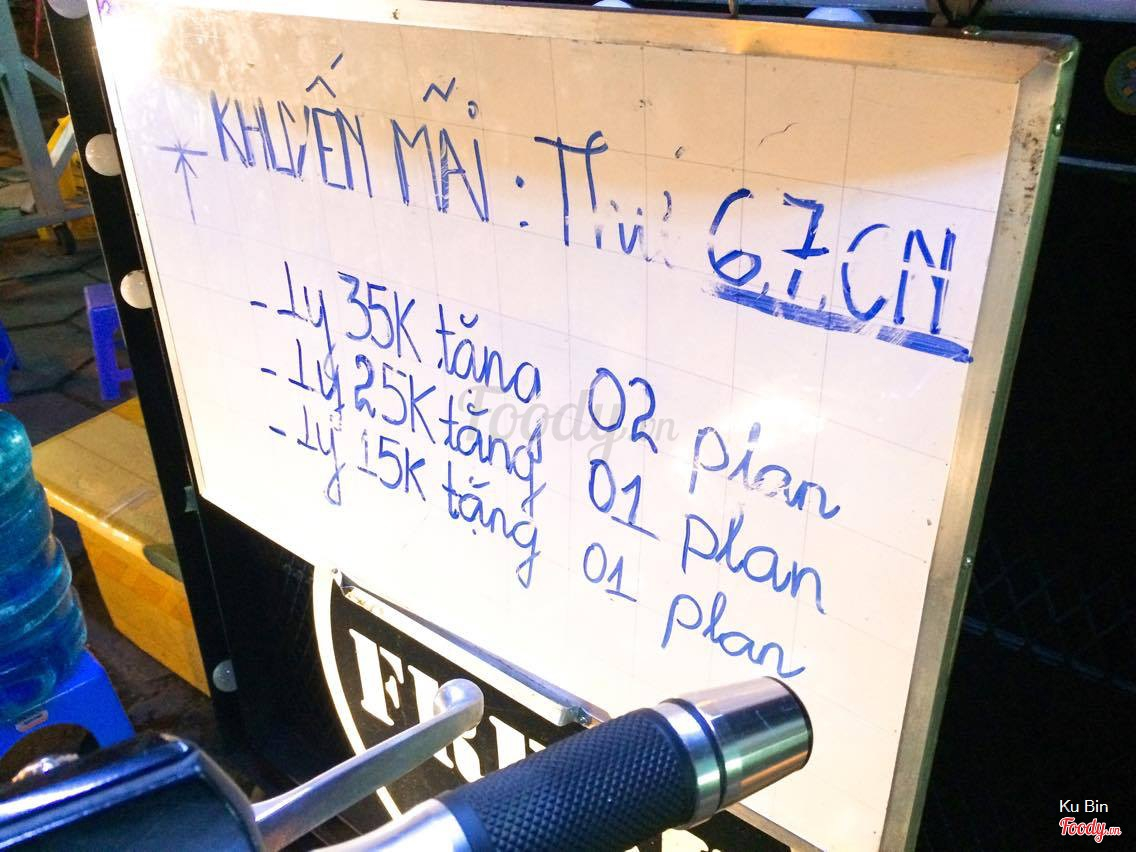 * KHUYẾN MÃI : Thứ 6,7,CN
- 1 ly 35K tặng 02 plan
- 1 ly 25K tặng 01 plan
- 1 ly 15K tặng 01 plan
Foody.vn
Ku Bin
Foody.vn